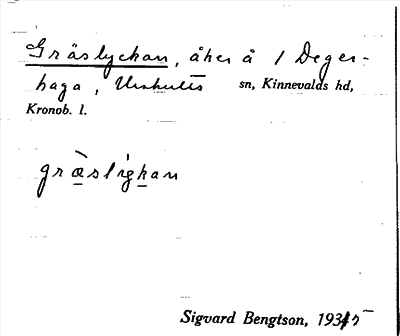 Gräslyckan, åker å 1 Deger-
haga, Urshults sn, Kinnevalds hd,
Kronob. l.
græslighan
Sigvard Bengtson, 1935